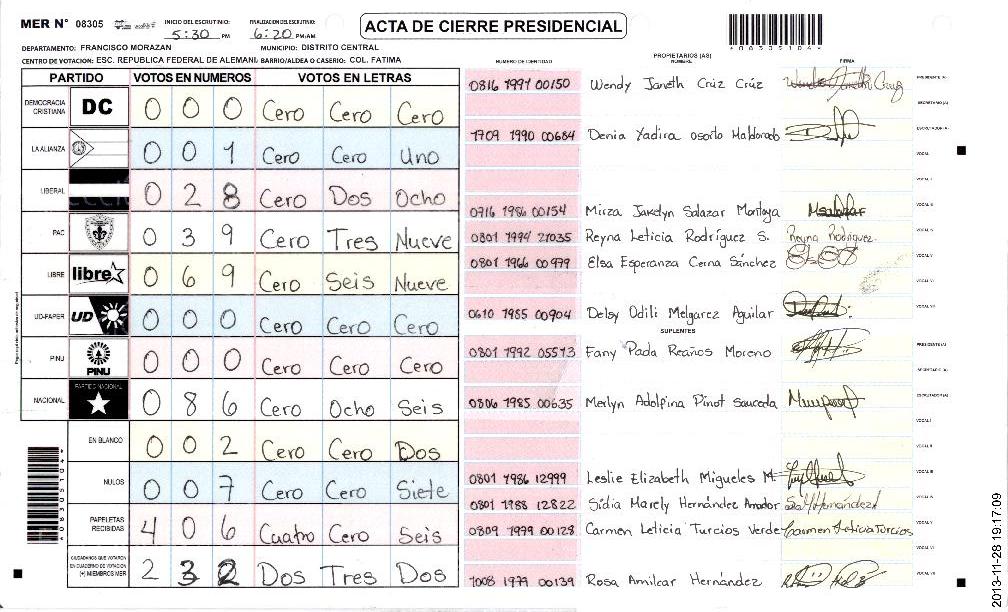 MER N° 08305
INICIO DEL ESCRUTINIO: 5:30 PM
FINALIZACION DEL ESCRUTINIO: 6:20 PM/AM
ACTA DE CIERRE PRESIDENCIAL
08305104
DEPARTAMENTO: FRANCISCO MORAZAN MUNICIPIO: DISTRITO CENTRAL
CENTRO DE VOTACION: ESC. REPUBLICA FEDERAL DE ALEMANI BARRIO/ALDEA O CASERIO: COL. FATIMA
PARTIDO VOTOS EN NUMEROS VOTOS EN LETRAS
DEMOCRACIA CRISTIANA DC 0 0 0 Cero Cero Cero
LA ALIANZA 0 0 1 Cero Cero Uno
LIBERAL 0 2 8 Cero Dos Ocho
PAC 0 3 9 Cero Tres Nueve
LIBRE libre 0 6 9 Cero Seis Nueve
UD-FAPER UD 0 0 0 Cero Cero Cero
PINU PINU 0 0 0 Cero Cero Cero
NACIONAL PARTIDO NACIONAL 0 8 6 Cero Ocho Seis
EN BLANCO 0 0 2 Cero Cero Dos
NULOS 0 0 7 Cero Cero Siete
PAPELETAS RECIBIDAS 4 0 6 Cuatro Cero Seis
CIUDADANOS QUE VOTARON EN CUADERNO DE VOTACION (+) MIEMBROS MER 2 3 2 Dos Tres Dos
08305104
NUMERO DE IDENTIDAD PROPIETARIOS (AS) NOMBRE FIRMA
0816 1991 00150 Wendy Janeth Cruz Crúz PRESIDENTE (A)
SECRETARIO (A)
1709 1990 00684 Denia Yadira Osorto Maldonado ESCRUTADOR (A)
VOCAL I
VOCAL II
0916 1986 00154 Mirza Jakelyn Salazar Montoya MSalazar VOCAL III
0801 1994 21035 Reyna Leticia Rodríguez S. Reyna Rodriguez. VOCAL IV
0801 1966 00979 Elsa Esperanza Cerna Sánchez VOCAL V
VOCAL VI
0610 1985 00904 Delsy Odili Melgarez Aguilar VOCAL VII
SUPLENTES
0801 1992 05513 Fany Paola Reaños Moreno PRESIDENTE (A)
SECRETARIO (A)
0806 1985 00635 Merlyn Adolfina Pinot Sauceda ESCRUTADOR (A)
VOCAL I
VOCAL II
0801 1986 12999 Leslie Elizabeth Migueles M. VOCAL III
0801 1988 12822 Sidia Marely Hernández Amador VOCAL IV
0809 1979 00128 Carmen Leticia Turcios Verde Carmen Leticia Turcios VOCAL V
VOCAL VI
1008 1977 00139 Rosa Amilcar Hernández VOCAL VII
2013-11-28 19:17:09